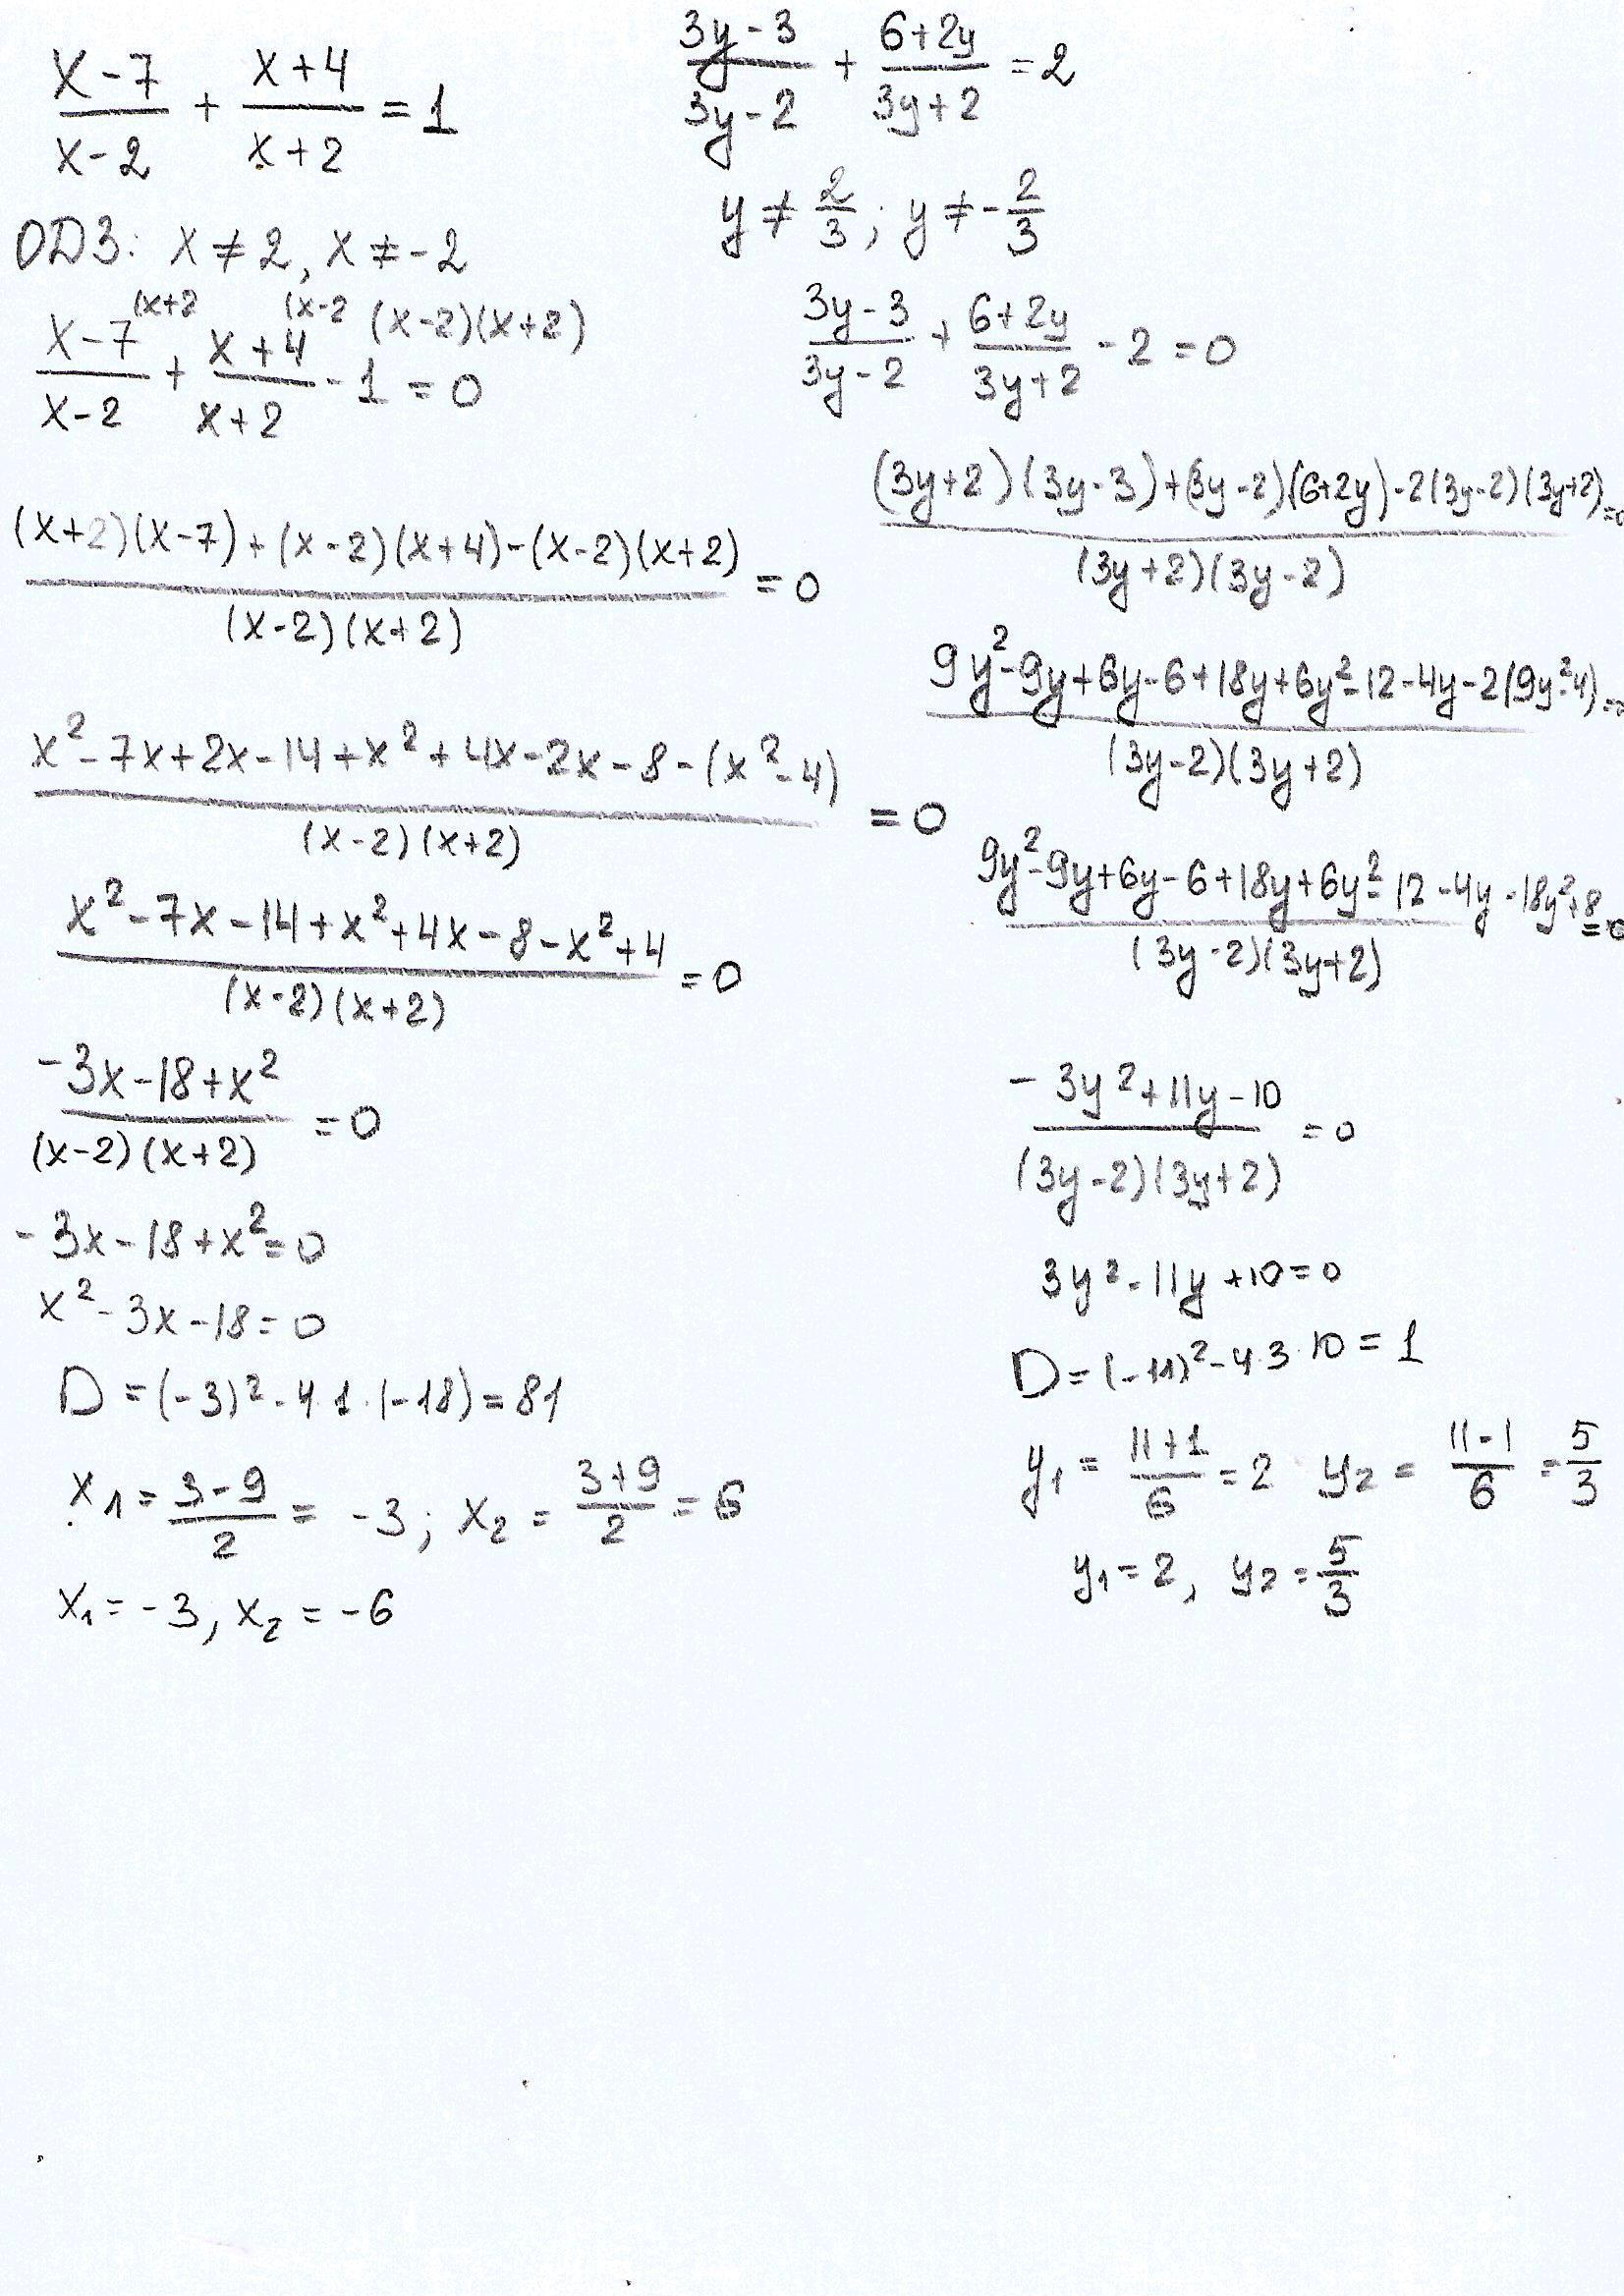 x-7/x-2 + x+4/x+2 = 1
ОДЗ: x ≠ 2, x ≠ -2
x-7 (x+2 / x-2 + x+4 (x-2 / x+2 - 1 (x-2)(x+2) = 0
(x+2)(x-7)+(x-2)(x+4)-(x-2)(x+2) / (x-2)(x+2) = 0
x²-7x+2x-14+x²+4x-2x-8-(x²-4) / (x-2)(x+2) = 0
x²-7x-14+x²+4x-8-x²+4 / (x-2)(x+2) = 0
-3x-18+x² / (x-2)(x+2) = 0
-3x-18+x²=0
x²-3x-18=0
D=(-3)²-4·1·(-18)=81
x₁ = 3-9/2 = -3; x₂ = 3+9/2 = 6
x₁=-3, x₂=-6
3y-3/3y-2 + 6+2y/3y+2 = 2
y ≠ 2/3; y ≠ -2/3
3y-3/3y-2 + 6+2y/3y+2 - 2 = 0
(3y+2)(3y-3)+(3y-2)(6+2y)-2(3y-2)(3y+2) / (3y+2)(3y-2) =0
9y²-9y+6y-6+18y+6y²-12-4y-2(9y²-4) / (3y-2)(3y+2) =
9y²-9y+6y-6+18y+6y²-12-4y-18y²+8 / (3y-2)(3y+2) =0
-3y²+11y-10 / (3y-2)(3y+2) = 0
3y²-11y+10=0
D=(-11)²-4·3·10=1
y₁ = 11+1/6 = 2 y₂ = 11-1/6 = 5/3
y₁=2, y₂=5/3